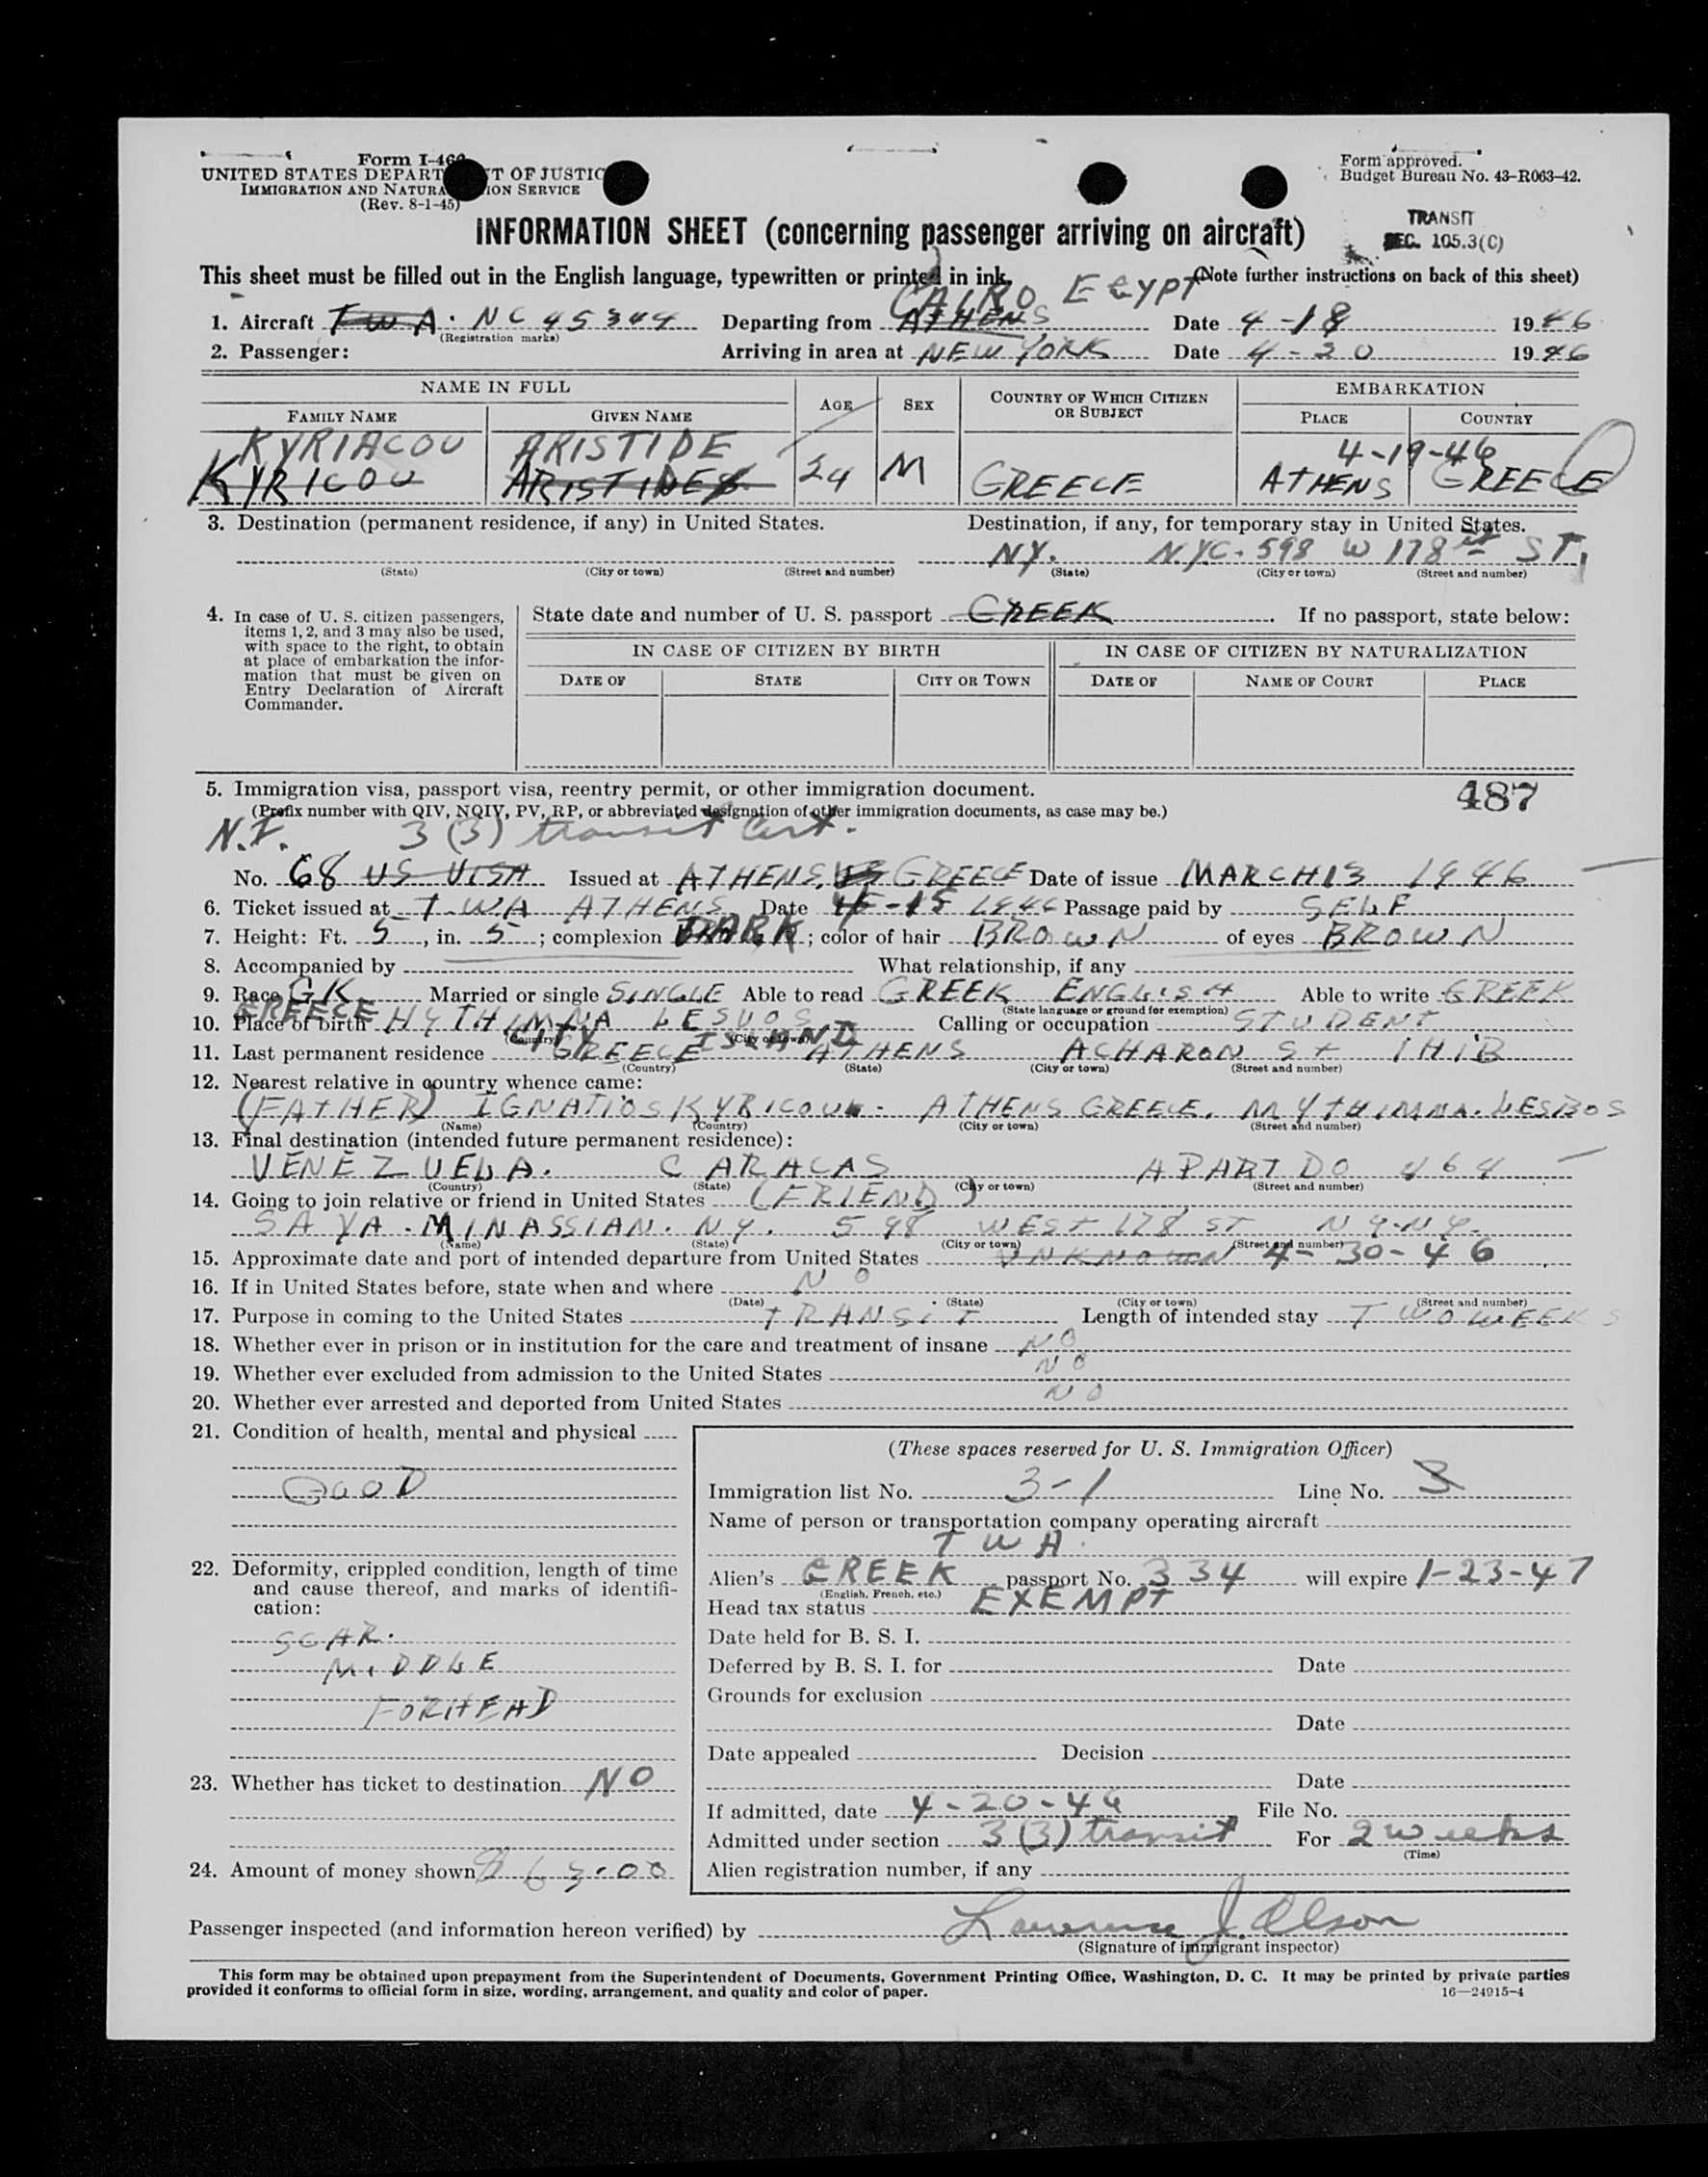 Form I-46
UNITED STATES DEPART T OF JUSTIC
IMMIGRATION AND NATURA ION SERVICE
(Rev. 8-1-45)
Form approved.
Budget Bureau No. 43-R063-42.
TRANSIT
SEC. 105.3(C)
INFORMATION SHEET (concerning passenger arriving on aircraft)
This sheet must be filled out in the English language, typewritten or printed in ink. (Note further instructions on back of this sheet)
CAIRO EGYPT
1. Aircraft TWA. NC 45344 Departing from ATHENS Date 4-18 1946
(Registration marks)
2. Passenger: Arriving in area at NEW YORK Date 4-20 1946
NAME IN FULL AGE SEX COUNTRY OF WHICH CITIZEN OR SUBJECT EMBARKATION
FAMILY NAME GIVEN NAME PLACE COUNTRY
KYRIACOU ARISTIDE 4-19-46
KYRICOU ARISTIDES 24 M GREECE ATHENS GREECE
3. Destination (permanent residence, if any) in United States. Destination, if any, for temporary stay in United States.
NY. NYC. 598 W 178 ST.
(State) (City or town) (Street and number) (State) (City or town) (Street and number)
4. In case of U. S. citizen passengers, items 1, 2, and 3 may also be used, with space to the right, to obtain at place of embarkation the information that must be given on Entry Declaration of Aircraft Commander.
State date and number of U. S. passport GREEK. If no passport, state below:
IN CASE OF CITIZEN BY BIRTH IN CASE OF CITIZEN BY NATURALIZATION
DATE OF STATE CITY OR TOWN DATE OF NAME OF COURT PLACE
5. Immigration visa, passport visa, reentry permit, or other immigration document. 487
(Prefix number with QIV, NQIV, PV, RP, or abbreviated designation of other immigration documents, as case may be.)
N.I. 3(3) transit Cert.
No. 68 US VISA Issued at ATHENS, GREECE Date of issue MARCH 13 1946
6. Ticket issued at TWA ATHENS Date 4-15 1946 Passage paid by SELF
7. Height: Ft. 5, in. 5; complexion DARK; color of hair BROWN of eyes BROWN
8. Accompanied by What relationship, if any
9. Race GK Married or single SINGLE Able to read GREEK ENGLISH Able to write GREEK
(State language or ground for exemption)
GREECE
10. Place of birth MYTHIMNA LESVOS Calling or occupation STUDENT
(Country) (City or town)
CITY ISLAND
11. Last permanent residence GREECE ATHENS ACHARON St 141B
(Country) (State) (City or town) (Street and number)
12. Nearest relative in country whence came:
(FATHER) IGNATIOS KYRICOU. ATHENS GREECE. MYTHIMNA. LESBOS
(Name) (Country) (City or town) (Street and number)
13. Final destination (intended future permanent residence):
VENEZUELA. CARACAS APARTDO 464
(Country) (State) (City or town) (Street and number)
14. Going to join relative or friend in United States (FRIEND)
SAVA. MINASSIAN. NY. 598 WEST 178 ST NY.NY.
(Name) (State) (City or town) (Street and number)
15. Approximate date and port of intended departure from United States UNKNOWEN 4-30-46
16. If in United States before, state when and where NO
(Date) (State) (City or town) (Street and number)
17. Purpose in coming to the United States TRANSIT Length of intended stay TWO WEEKS
18. Whether ever in prison or in institution for the care and treatment of insane NO
19. Whether ever excluded from admission to the United States NO
20. Whether ever arrested and deported from United States NO
21. Condition of health, mental and physical
GOOD
22. Deformity, crippled condition, length of time and cause thereof, and marks of identification:
SCAR.
MIDDLE
FORHEAD
23. Whether has ticket to destination NO
24. Amount of money shown $ 65.00
(These spaces reserved for U. S. Immigration Officer)
Immigration list No. 3-1 Line No. 3
Name of person or transportation company operating aircraft
TWA.
Alien's GREEK passport No. 334 will expire 1-23-47
(English, French, etc.)
Head tax status EXEMPT
Date held for B. S. I.
Deferred by B. S. I. for Date
Grounds for exclusion
Date
Date appealed Decision
Date
If admitted, date 4-20-46 File No.
Admitted under section 3(3) transit For 2 weeks
(Time)
Alien registration number, if any
Passenger inspected (and information hereon verified) by Lawrence J. Olson
(Signature of immigrant inspector)
This form may be obtained upon prepayment from the Superintendent of Documents, Government Printing Office, Washington, D. C. It may be printed by private parties
provided it conforms to official form in size, wording, arrangement, and quality and color of paper. 16—24915-4